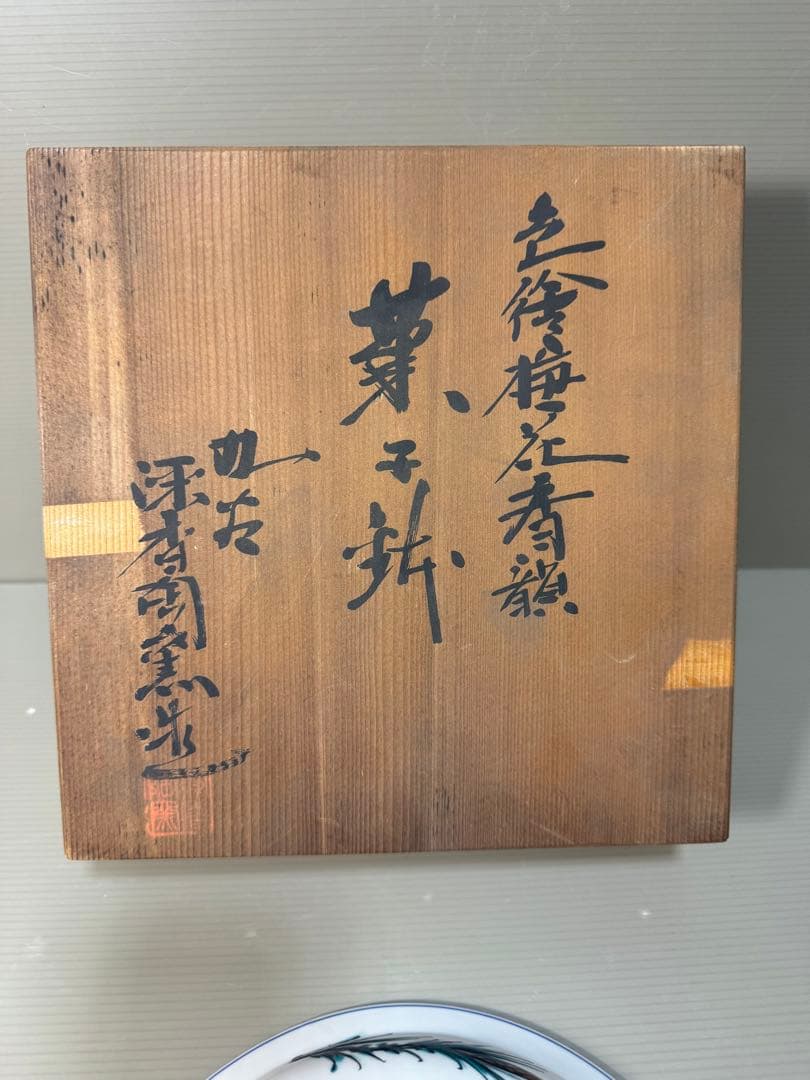 色絵梅花香韻
菓子鉢
九谷
深香陶窯造